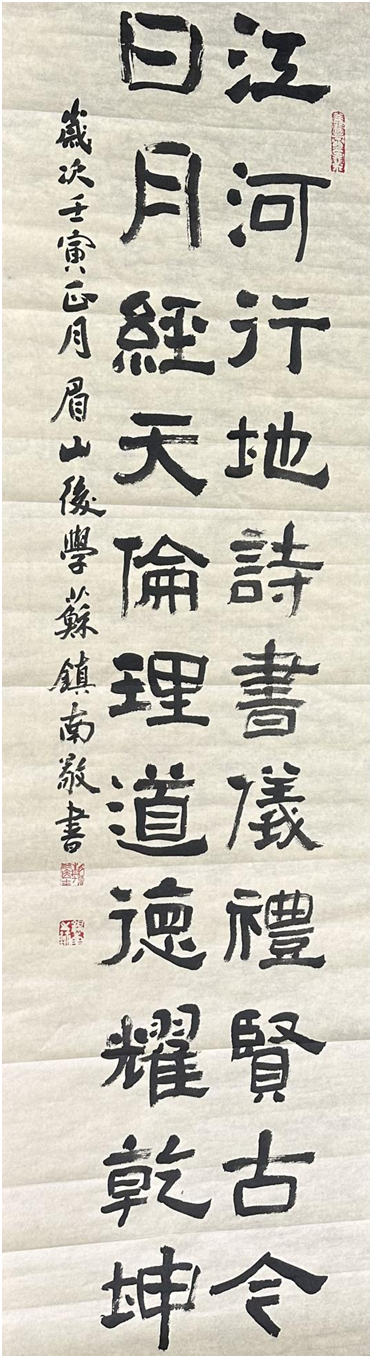 江河行地詩書儀禮賢古今
日月經天倫理道德耀乾坤
歲次壬寅正月眉山後學蘇鎮南敬書